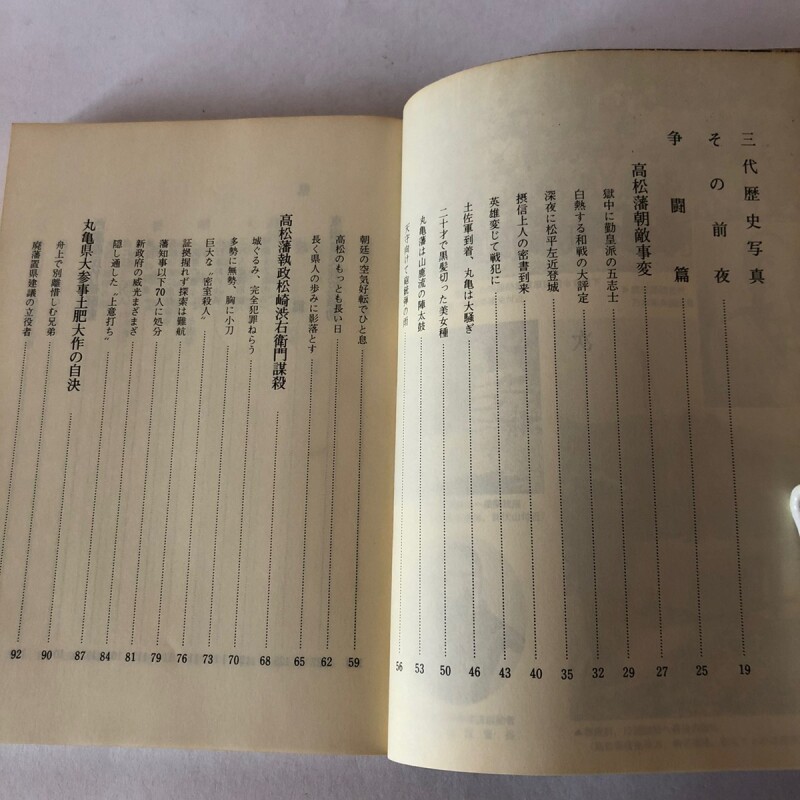 三代歴史写真……19
その前夜……25
争闘篇……27
高松藩朝敵事変……29
獄中に勤皇派の五志士……32
白熱する和戦の大評定……35
深夜に松平左近登城……40
摂信上人の密書到来……43
英雄変じて戦犯に……46
土佐軍到着、丸亀は大騒ぎ……50
二十才で黒髪切った美女種……53
丸亀藩は山鹿流の陣太鼓……56
朝廷の空気好転でひと息……59
高松のもっとも長い日……62
長く県人の歩みに影落とす……65
高松藩執政松崎渋右衛門謀殺……68
城ぐるみ、完全犯罪ねらう……70
多勢に無勢、胸に小刀……73
巨大な〝密室殺人〟……76
証拠握れず探索は難航……79
藩知事以下70人に処分……81
新政府の威光まざまざ……84
隠し通した〝上意打ち〟……87
丸亀県大参事土肥大作の自決
舟上で別離惜しむ兄弟……90
廃藩置県建議の立役者……92